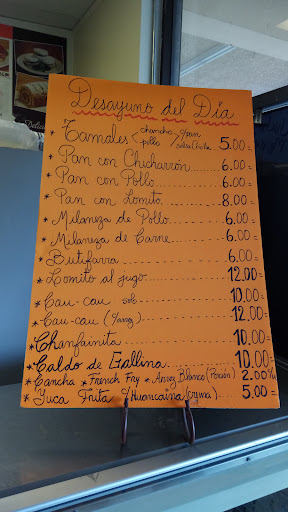 Desayuno del Día
* Tamales <chancho pollo> c/pan salsa criolla 5.00=
* Pan con Chicharrón........ 6.00=
* Pan con Pollo........ 6.00=
* Pan con Lomito........ 8.00=
* Milaneza de Pollo........ 6.00=
* Milaneza de Carne........ 6.00=
* Butifarra........ 6.00=
* Lomito al jugo........ 12.00=
* Cau-cau solo........ 10.00=
* Cau-cau (c/arroz)........ 12.00=
* Chanfainita........ 10.00=
* Caldo de Gallina........ 10.00=
* Cancha * French Fry * Arroz Blanco (Porción) 2.00
* Yuca Frita c/Huancaina (crema) 5.00=